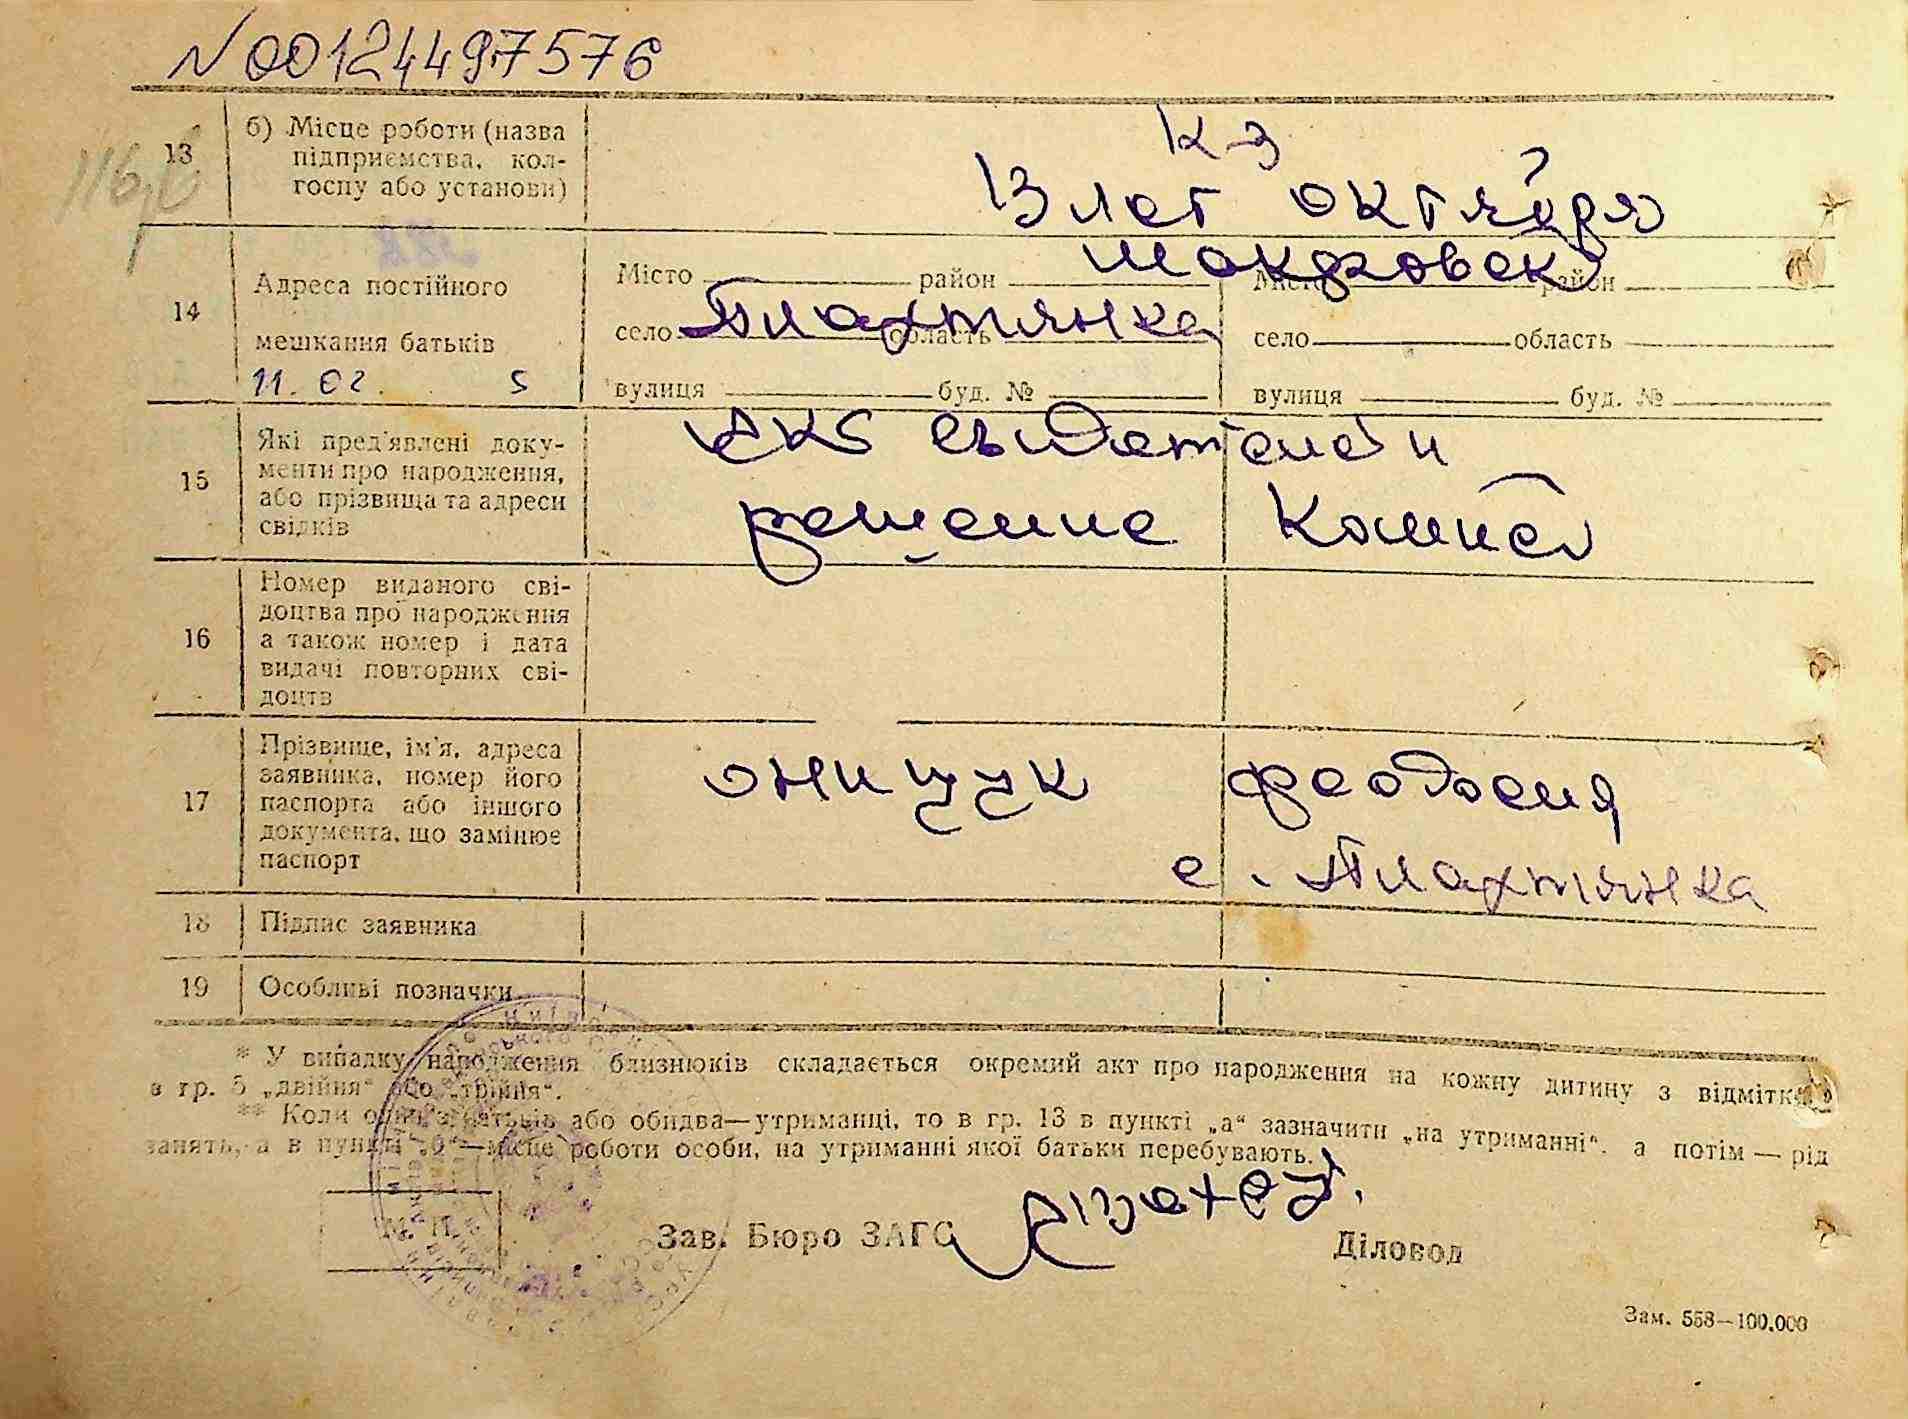 N 00124497576
13
б) Місце роботи (назва
підприємства, кол-
госпу або установи)
кз
13 лет октября
116,
14
Адреса постійного
мешкання батьків
11. 02. 5
Місто район
село Плахтянка область
вулиця буд. №
Макровск
Місто район
село область
вулиця буд. №
15
Які пред'явлені доку-
менти про народження,
або прізвища та адреси
свідків
решение
16
Номер виданого сві-
доцтва про народження
а також номер і дата
видачі повторних сві-
доцтв
17
Прізвище, ім'я, адреса
заявника, номер його
паспорта або іншого
документа, що замінює
паспорт
Онищук Феодосия
с. Плахтянка
18
Підпис заявника
19
Особливі позначки
* У випадку народження близнюків складається окремий акт про народження на кожну дитину з відміткою
в гр. 5 „двійня“ або „трійня“.
** Коли один з батьків або обидва—утриманці, то в гр. 13 в пункті „а“ зазначити „на утриманні“, а потім — рід
занять, а в пункті „б“—місце роботи особи, на утриманні якої батьки перебувають.
М. П.
Зав. Бюро ЗАГС
Діловод
Зам. 558—100.000